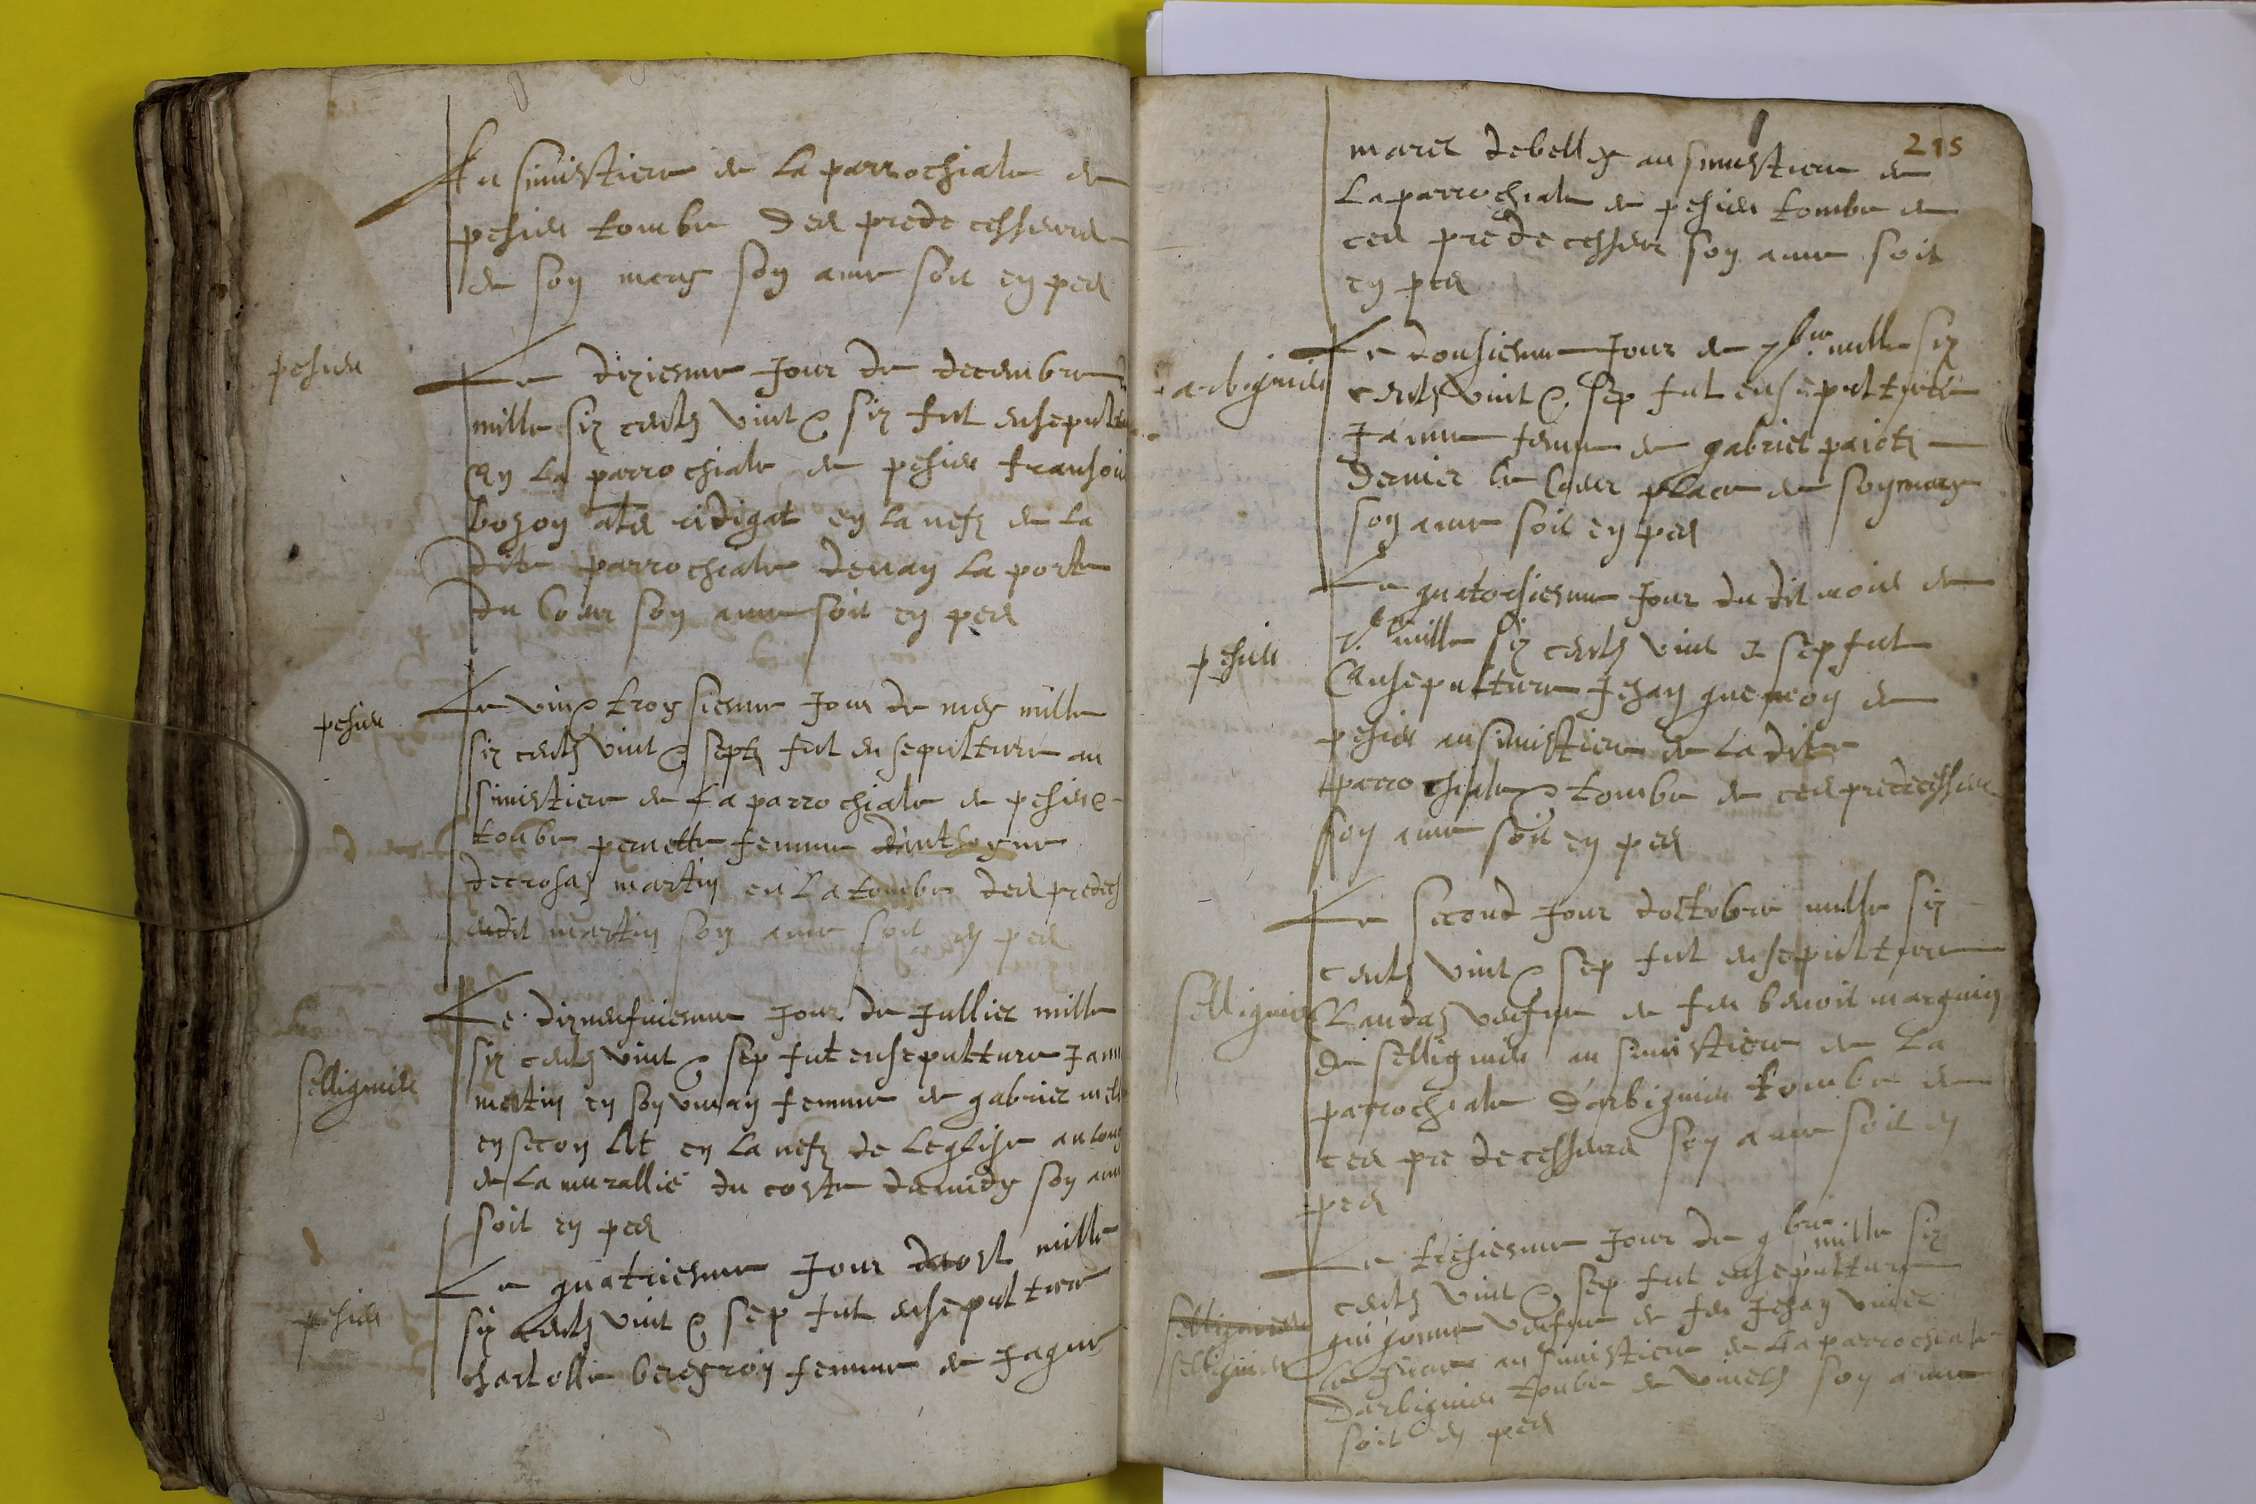 Au simistiere de La parrochiale de
pesieu tombe des predecesseurs
de son mary son ame soit en pes
pesieu
Le diziesme Jour de decembre
mille siz cents vint & siz fut ensepulture
En La parrochiale de pesieu fransois
bozon en La nefz de La
dite parrochiale devan La porte
du Coeur son ame soit en pes
pesieu
Le vint troysiesme Jour de may mille
siz cents vint & septz fut ensepulture au
simistiere de La parrochiale de pesieu &
tonbe pernette femme
martin en La tombe des predecs
dudit martin son ame soit en pes
sellignieu
Le diznefviesme Jour de Jullier mille
siz cents vint & sep fut ensepulture Jane
martin en son vivan femme de gabriel
en secon Lit en La nefz de Leglise au Long
de La murallie du coste du midy son ame
soit en pes
pesieu
Le quatriesme Jour daost mille
siz cents vint & sep fut ensepulture
femme de Jaque
215
marel debelley au simistiere de
La parrochiale de pesieu tombe de
ces predecesseur son ame soit
en pes
arbignieu
Le dousiesme Jour de 7bre mille siz
cents vint & sep fut ensepulture
Janne femme de gabriel paictz
dernier le Coeur place de son mary
son ame soit en pes
pesieu
Le quatorsiesme Jour du dit mois de
7bre mille siz cents vint & sep fut
Ensepulture Jehan de
pesieu au simistiere de La dite
parrochiale & tombe de ces predecesseur
son ame soit en pes
sellignieu
Le second Jour doctobre mille siz
cents vint & sep fut ensepulture
Claudaz veufve de feu benoit marguin
de sellignieu au simistiere de La
parrochiale darbignieu tombe de
ces predecesseurs son ame soit en
pes
sellignieu
sellignieu
Le tresiesme Jour de 9bre mille siz
cents vint & sep fut ensepulture
guigonne veufve de feu Jehan viviel
au simistiere de La parrochiale
darbignieu tonbe de vivielz son ame
soit en pes